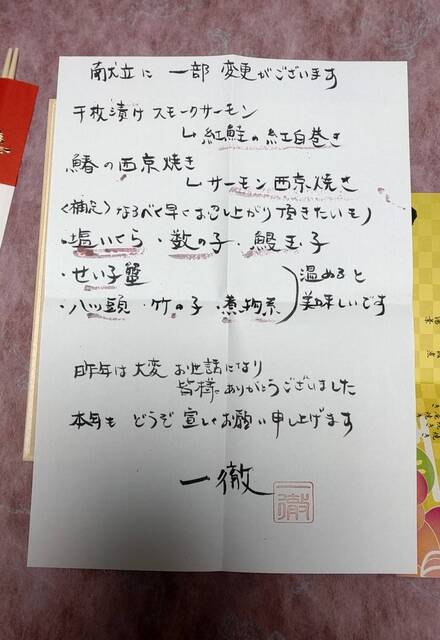 献立に 一部 変更がございます
千枚漬け スモークサーモン
↳ 紅鮭の紅白巻き
鰆の西京焼き
↳ サーモン西京焼き
〈補足〉なるべく早くお召し上がり頂きたいもの
・塩いくら ・数の子 ・鰻玉子
・せい子蟹
・八ツ頭 ・竹の子 ・煮物系
温めると
美味しいです
昨年は大変 お世話になり
皆様 ありがとうございました
本年も どうぞ 宜しくお願い申し上げます
一徹
一徹